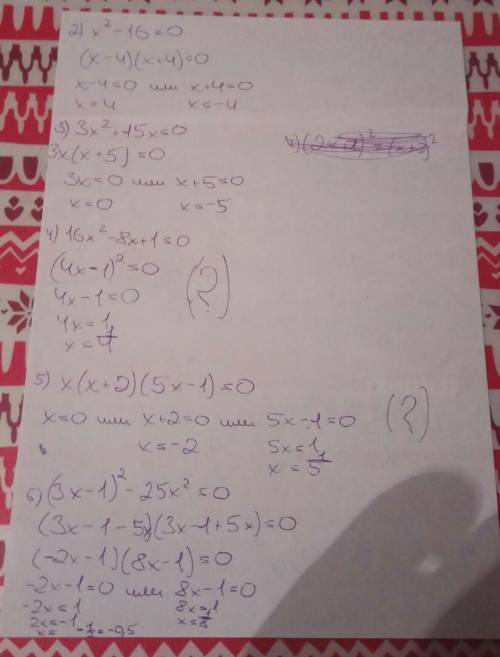 2) x² - 16 = 0
(x-4)(x+4)=0
x-4=0 или x+4=0
x=4 x=-4
3) 3x²+15x=0
3x(x+5)=0
3x=0 или x+5=0
x=0 x=-5
4) 16x²-8x+1=0
(4x-1)²=0 (?)
4x-1=0
4x=1
x=1/4
5) x(x+2)(5x-1)=0
x=0 или x+2=0 или 5x-1=0 (?)
x=-2 5x=1
x=1/5
6) (3x-1)²-25x²=0
(3x-1-5x)(3x-1+5x)=0
(-2x-1)(8x-1)=0
-2x-1=0 или 8x-1=0
-2x=1 8x=1
2x=-1 x=1/8
x=-1/2=-0,5